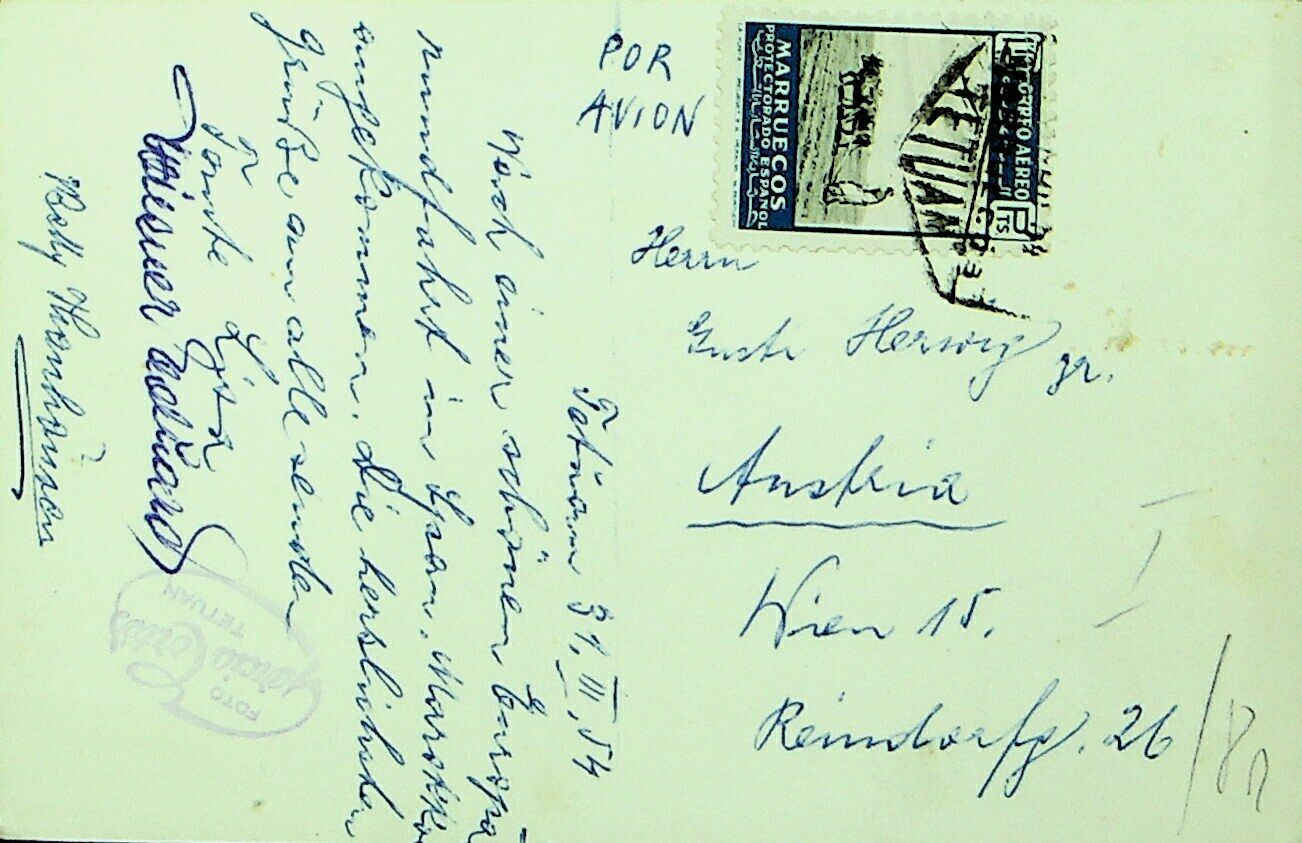 POR
AVION
MARRUECOS
PROTECTORADO ESPAÑOL
CORREO AEREO
PTS
TETUAN
Herrn
Herwig jr.
Austria
Wien 15.
Reindorfg. 26
Tetuan 31. III. 54
Nach einer schönen Europa
rundfahrt in Span. Marokko
angekommen. Die herzlichsten
Grüße an alle senden
Tante
FOTO
García Cortés
TETUAN